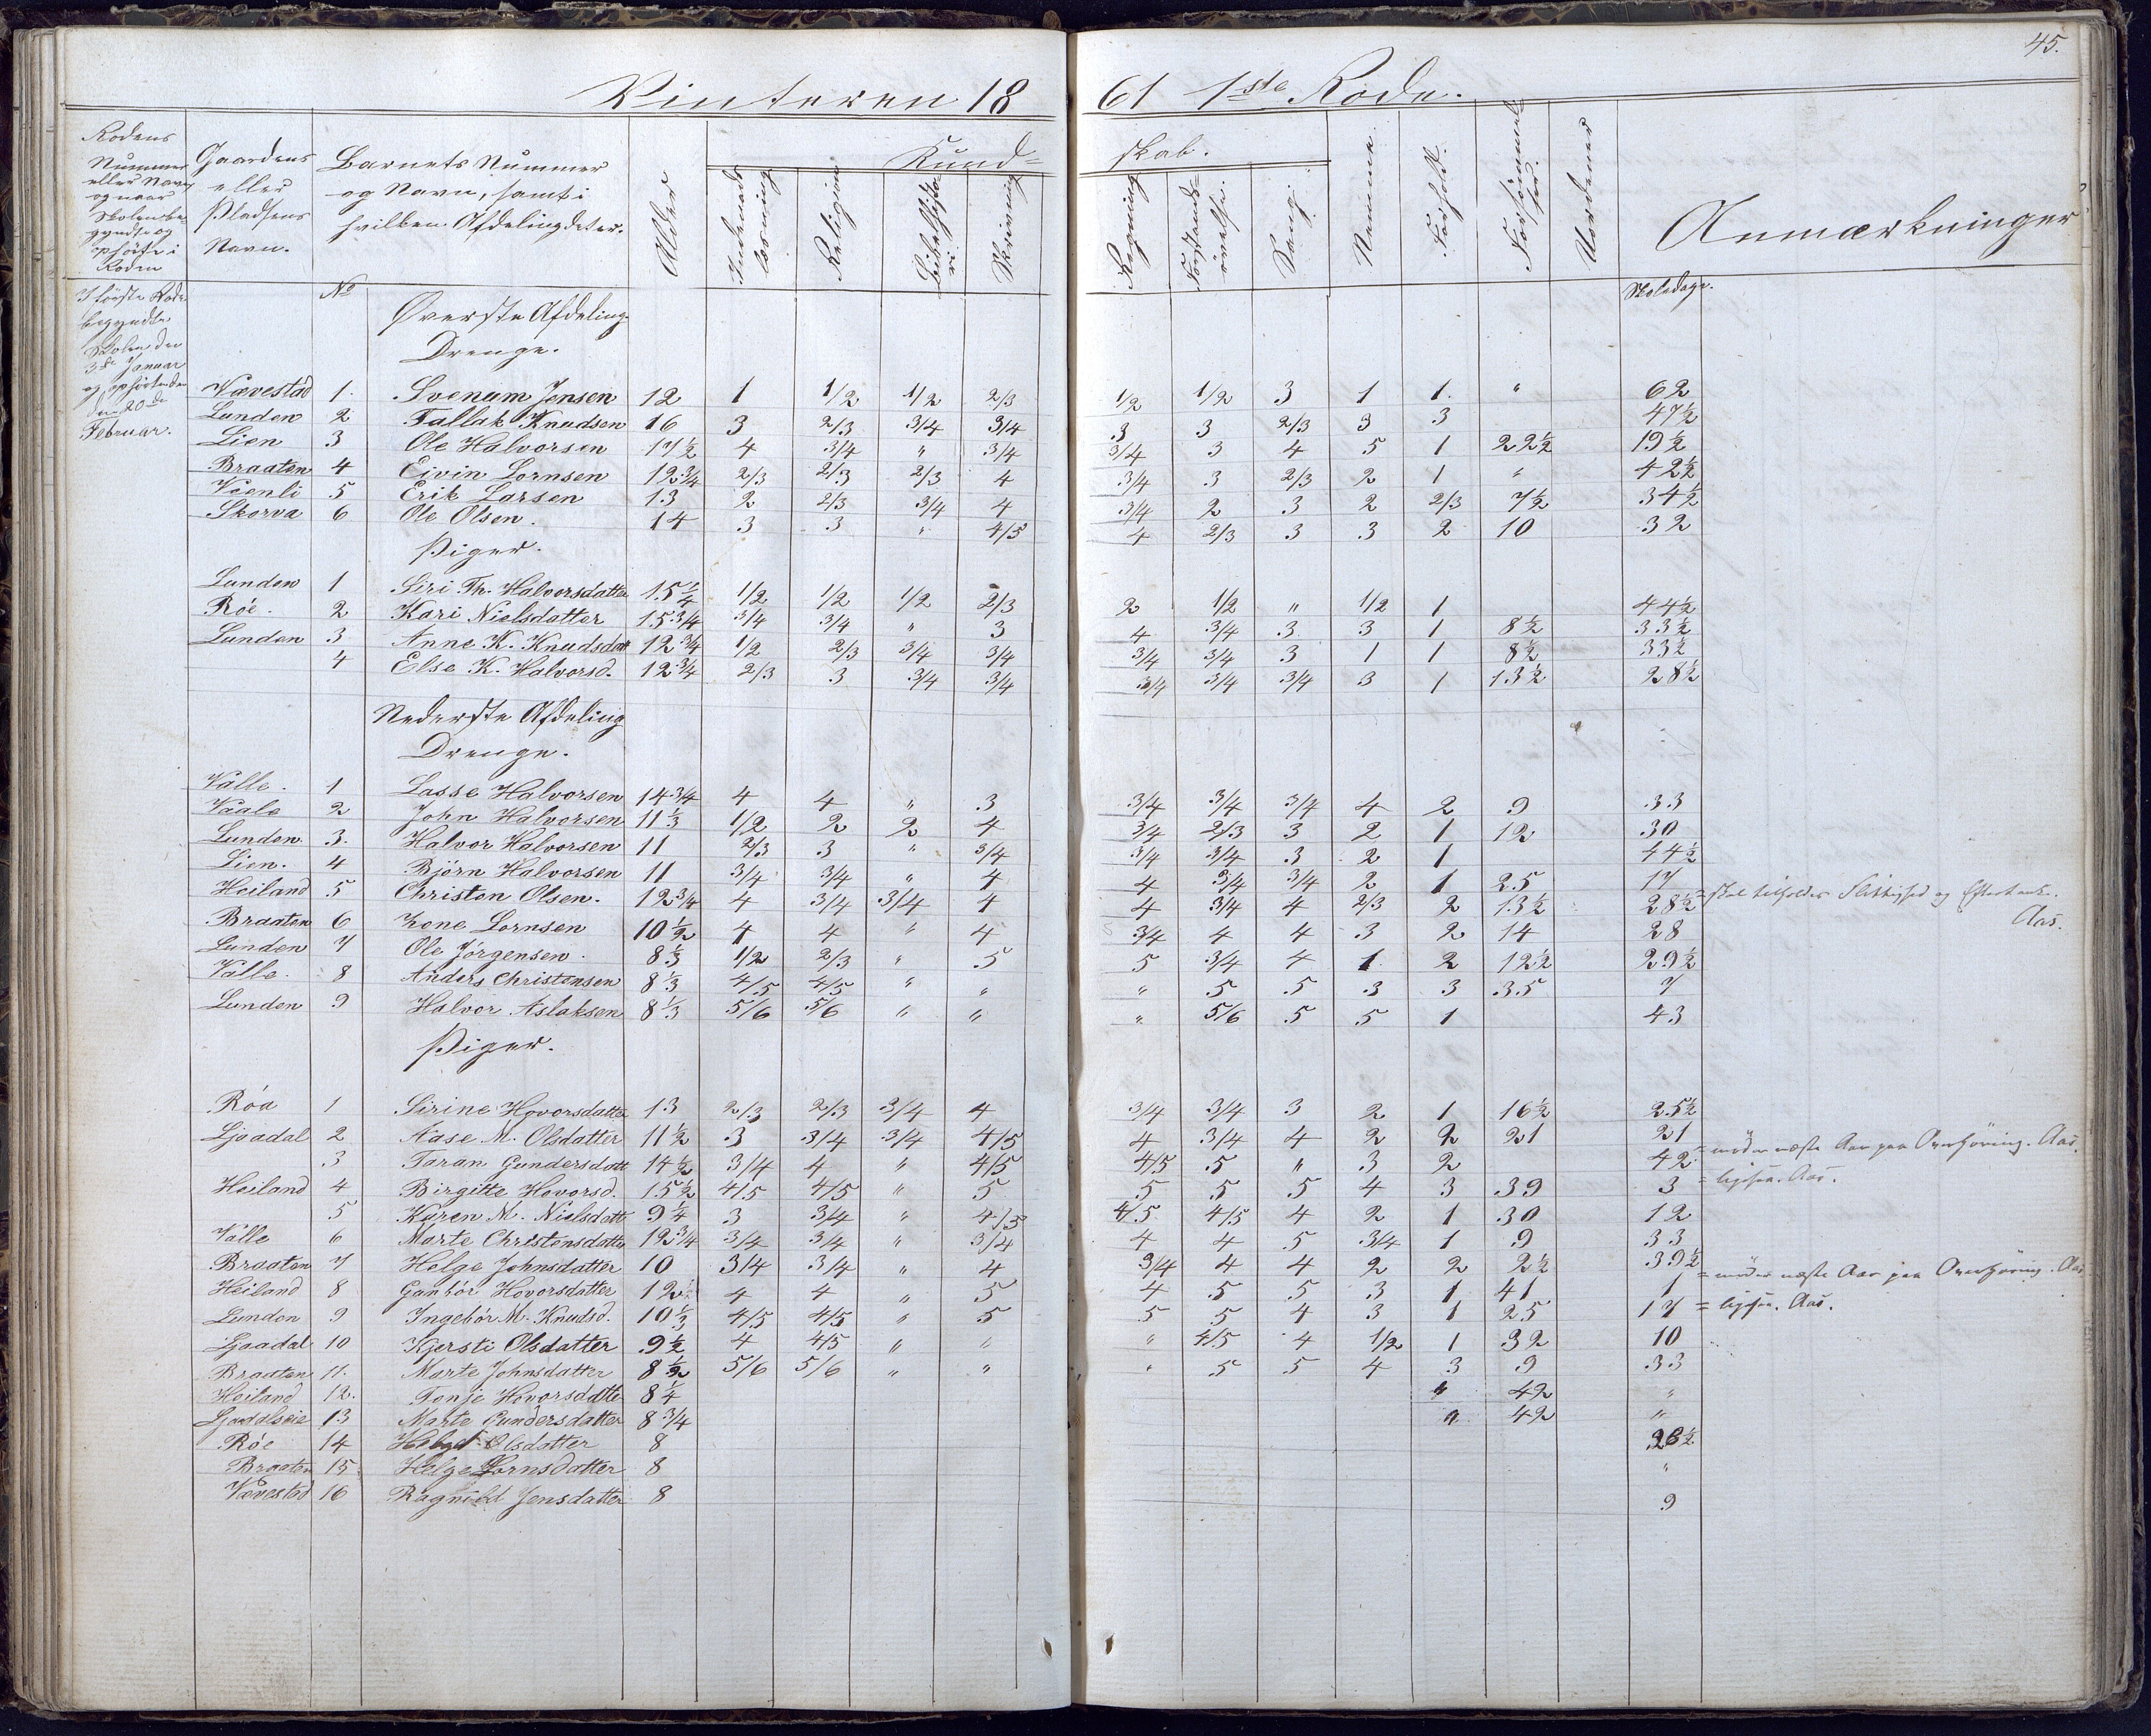 45.
Vinteren 1861 1ste Rode.
Rodens Nummer eller Navn og naar Skolen begyndte og ophörte i Roden
Gaardens eller Pladsens Navn.
Barnets Nummer og Navn, samt i hvilken Afdeling det er.
Alder
Kundskab.
Indenadslæsning
Religion
Bibelhistorie
Skrivning
Regning
Forstandsövelse.
Sang.
Nemme.
Forhold.
Forsömmelser.
Uordener
Anmærkninger
I förste Rode begyndte Skolen den 3die Januar og ophörte den 20de Februar.
No
Skoledage.
Øverste Afdeling
Drenge.
Vævestad 1. Svenum Jensen 12 1 1/2 1/2 2/3 1/2 1/2 3 1 1. " 62
Lunden 2 Tallak Knudsen 16 3 2/3 3/4 3/4 3 3 2/3 3 3 47½
Lien 3 Ole Halvorsen 17½ 4 3/4 " 3/4 3/4 3 4 5 1 22½ 19½
Braaten 4 Eivin Lornsen 12¾ 2/3 2/3 2/3 4 3/4 3 2/3 2 1 " 42½
Veenli 5 Erik Larsen 13 2 2/3 3/4 4 3/4 2 3 2 2/3 7½ 34½
Skorva 6 Ole Olsen. 14 3 3 " 4/5 4 2/3 3 3 2 10 32
Piger.
Lunden 1 Siri Th. Halvorsdatter 15¼ 1/2 1/2 1/2 2/3 2 1/2 " 1/2 1 44½
Röe. 2 Kari Nielsdatter 15¾ 3/4 3/4 " 3 4 3/4 3 3 1 8½ 33½
Lunden 3 Anne K. Knudsdatt 12¾ 1/2 2/3 3/4 3/4 3/4 3/4 3 1 1 8½ 33½
4 Else K. Halvorsd. 12¾ 2/3 3 3/4 3/4 3/4 3/4 3/4 3 1 13½ 28½
Nederste Afdeling
Drenge.
Valle. 1 Lasse Halvorsen 14¾ 4 4 " 3 3/4 3/4 3/4 4 2 9 33
Vaale 2 John Halvorsen 11⅓ 1/2 2 2 4 3/4 2/3 3 2 1 12 30
Lunden. 3. Halvor Halvorsen 11 2/3 3 " 3/4 3/4 3/4 3 2 1 44½
Lien. 4 Björn Halvorsen 11 3/4 3/4 " 4 4 3/4 3/4 2 1 25 17
Heiland 5 Christen Olsen. 12¾ 4 3/4 3/4 4 4 3/4 4 2/3 2 13½ 28½ = skal tilholdes Flittighed og Eftertanke. Aas.
Braaten 6 Lornsen 10½ 4 4 " 4 3/4 4 4 3 2 14 28
Lunden 7 Ole Jörgensen. 8⅓ 1/2 2/3 " 5 5 3/4 4 1 2 12½ 29½
Valle. 8 Anders Christensen 8⅓ 4/5 4/5 " " " 5 5 3 3 35 7
Lunden 9 Halvor Aslaksen 8⅓ 5/6 5/6 " " " 5/6 5 5 1 43
Piger.
Röa 1 Sirine Hovorsdatter 13 2/3 2/3 3/4 4 3/4 3/4 3 2 1 16½ 25½
Ljaadal 2 Aase M. Olsdatter 11½ 3 3/4 3/4 4/5 4 3/4 4 2 2 21 21
3 Taran Gundersdatt 14½ 3/4 4 " 4/5 4/5 5 " 3 2 42 = möder næste Aar paa Overhöring. Aas.
Heiland 4 Birgitte Hovorsd. 15½ 4/5 4/5 " 5 5 5 5 4 3 39 3 = ligesaa. Aas.
5 Karen M. Nielsdatt 9¼ 3 3/4 " 4/5 4/5 4/5 4 2 1 30 12
Valle 6 Marte Christensdatter 12¾ 3/4 3/4 " 3/4 4 4 5 3/4 1 9 33
Braaten 7 Helge Johnsdatter 10 3/4 3/4 " 4 3/4 4 4 2 2 2½ 39½
Heiland 8 Gunbör Hovorsdatter 12 4 4 " 5 4 5 5 3 1 41 1 = möder næste Aar paa Overhöring. Aas
Lunden 9 Ingebör M. Knudsd. 10⅓ 4/5 4/5 " 5 5 5 4 3 1 25 17 = ligesaa. Aas.
Ljaadal 10 Kjersti Olsdatter 9½ 4 4/5 " " " 4/5 4 1/2 1 32 10
Braaten 11. Marte Johnsdatter 8½ 5/6 5/6 " " " 5 5 4 3 9 33
Heiland 12. Tonje Hovorsdatter 8¼ " 42 "
Ljaadalseie 13 Marte Gundersdatter 8¾ " 42 "
Röe 14 Olsdatter 8
Braaten 15 Helge Lornsdatter 8 "
Vævestad 16 Ragnild Jensdatter 8 9